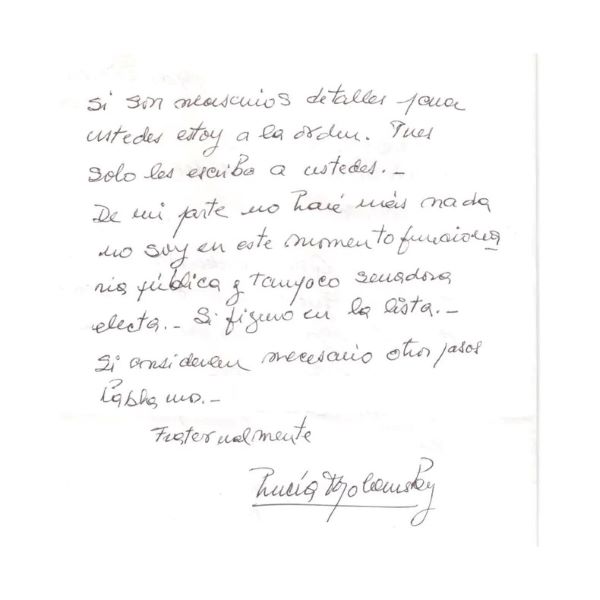 si son necesarios detalles para
ustedes estoy a la orden. Pues
solo les escribo a ustedes.-
De mi parte no haré más nada
no soy en este momento funciona
ria pública y tampoco senadora
electa.- Si figuro en la lista.-
Si consideran necesario otros pasos
hablamos.-
Fraternalmente
Lucía Topolansky